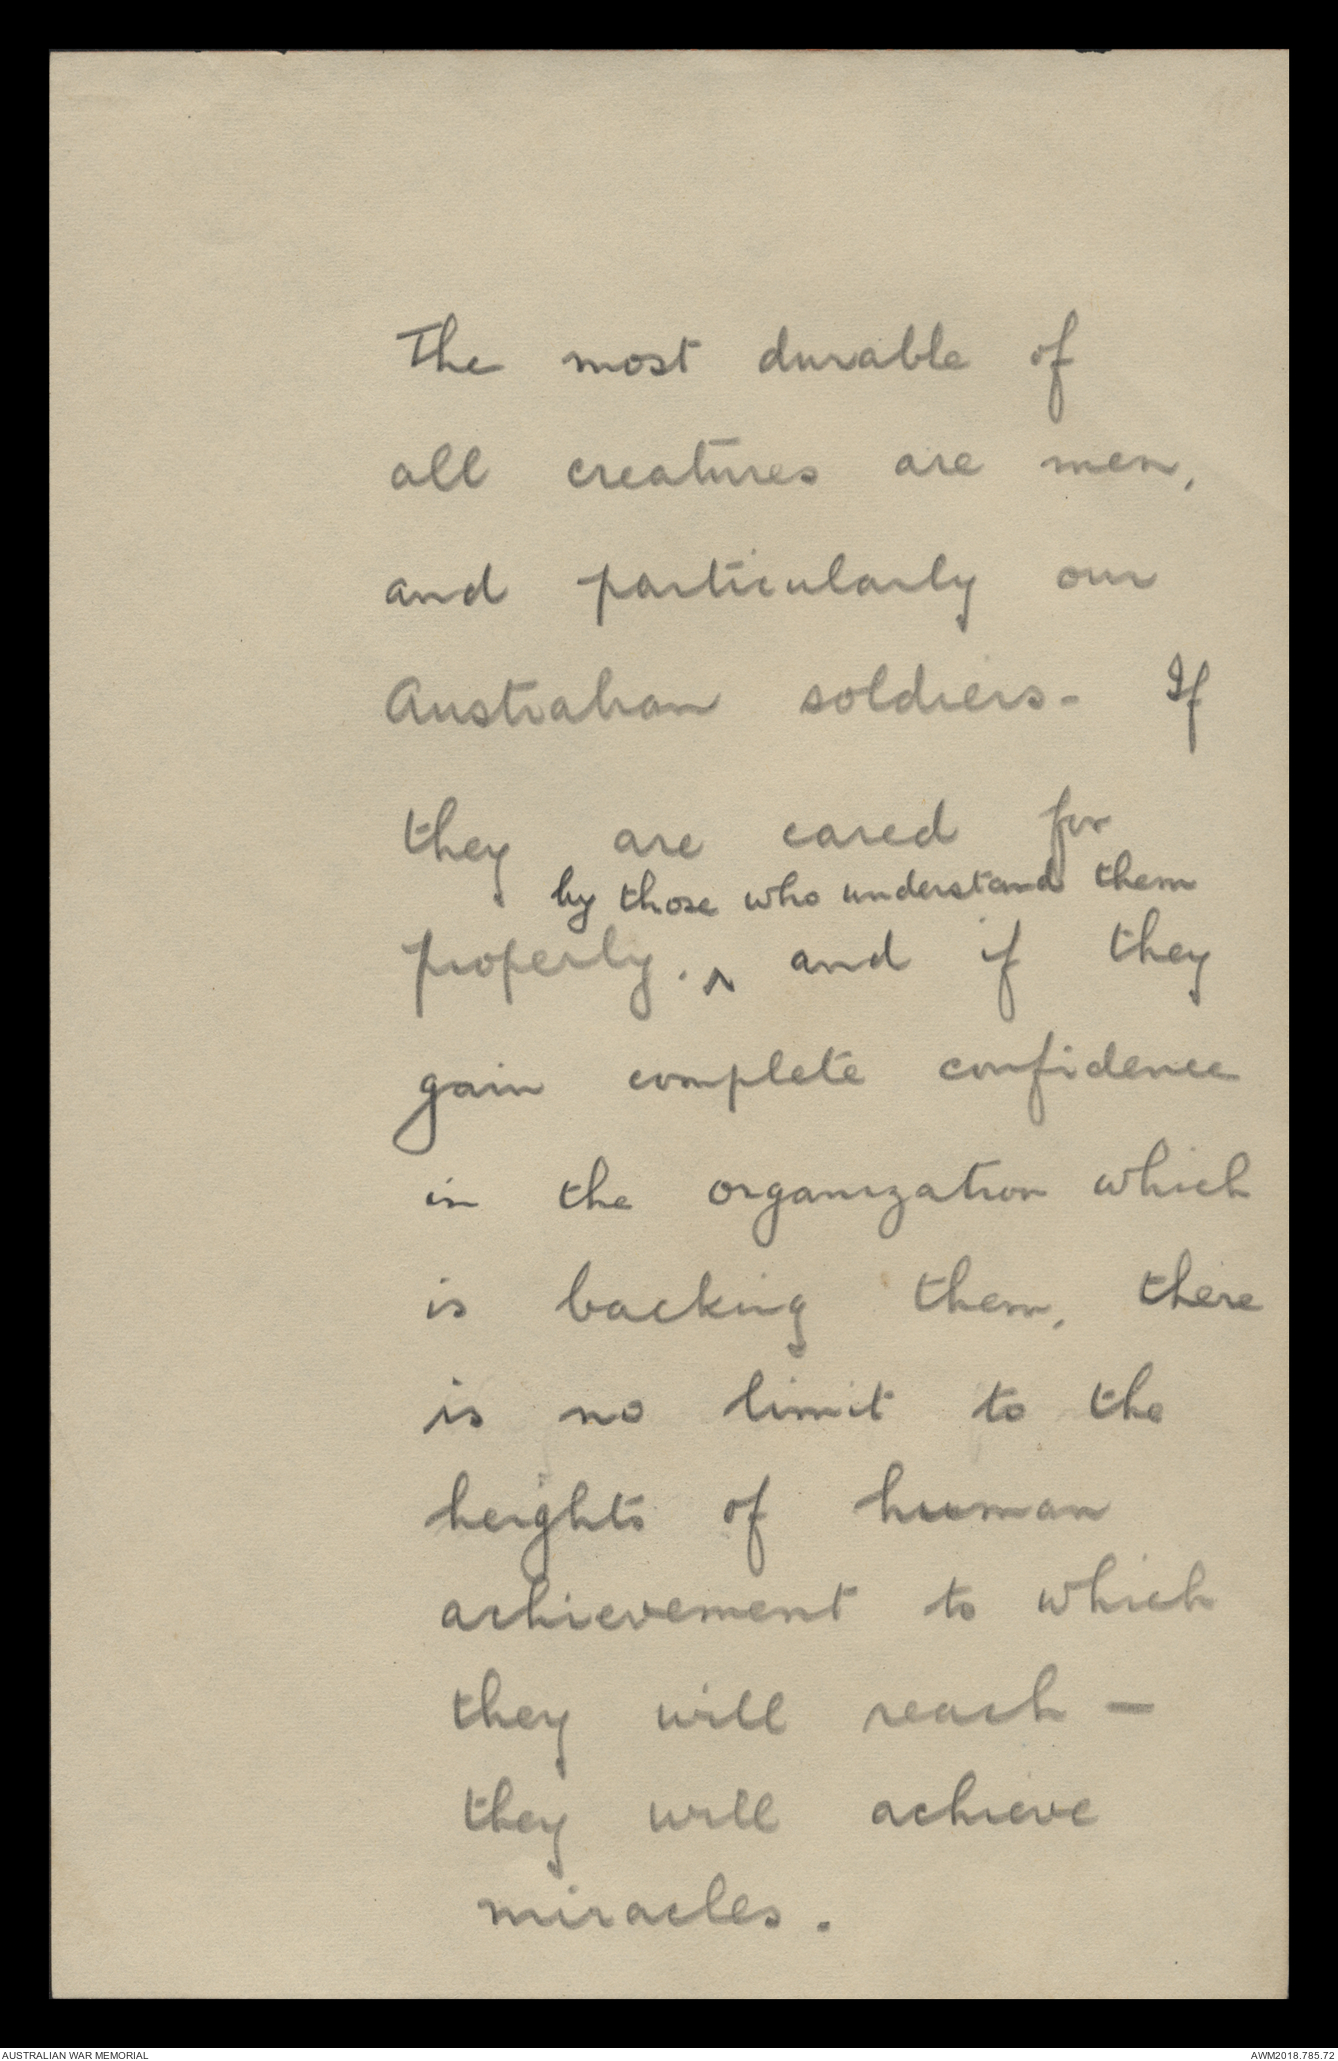 The most durable of
all creatures are men,
and particularly our
Australian soldiers - If
they are cared for
by those who understand them
properly. ^ and if they
gain complete confidence
in the organization which
is backing them, there
is no limit to the
heights of human
achievement to which
they will reach —
they will achieve
miracles.
AUSTRALIAN WAR MEMORIAL
AWM2018.785.72